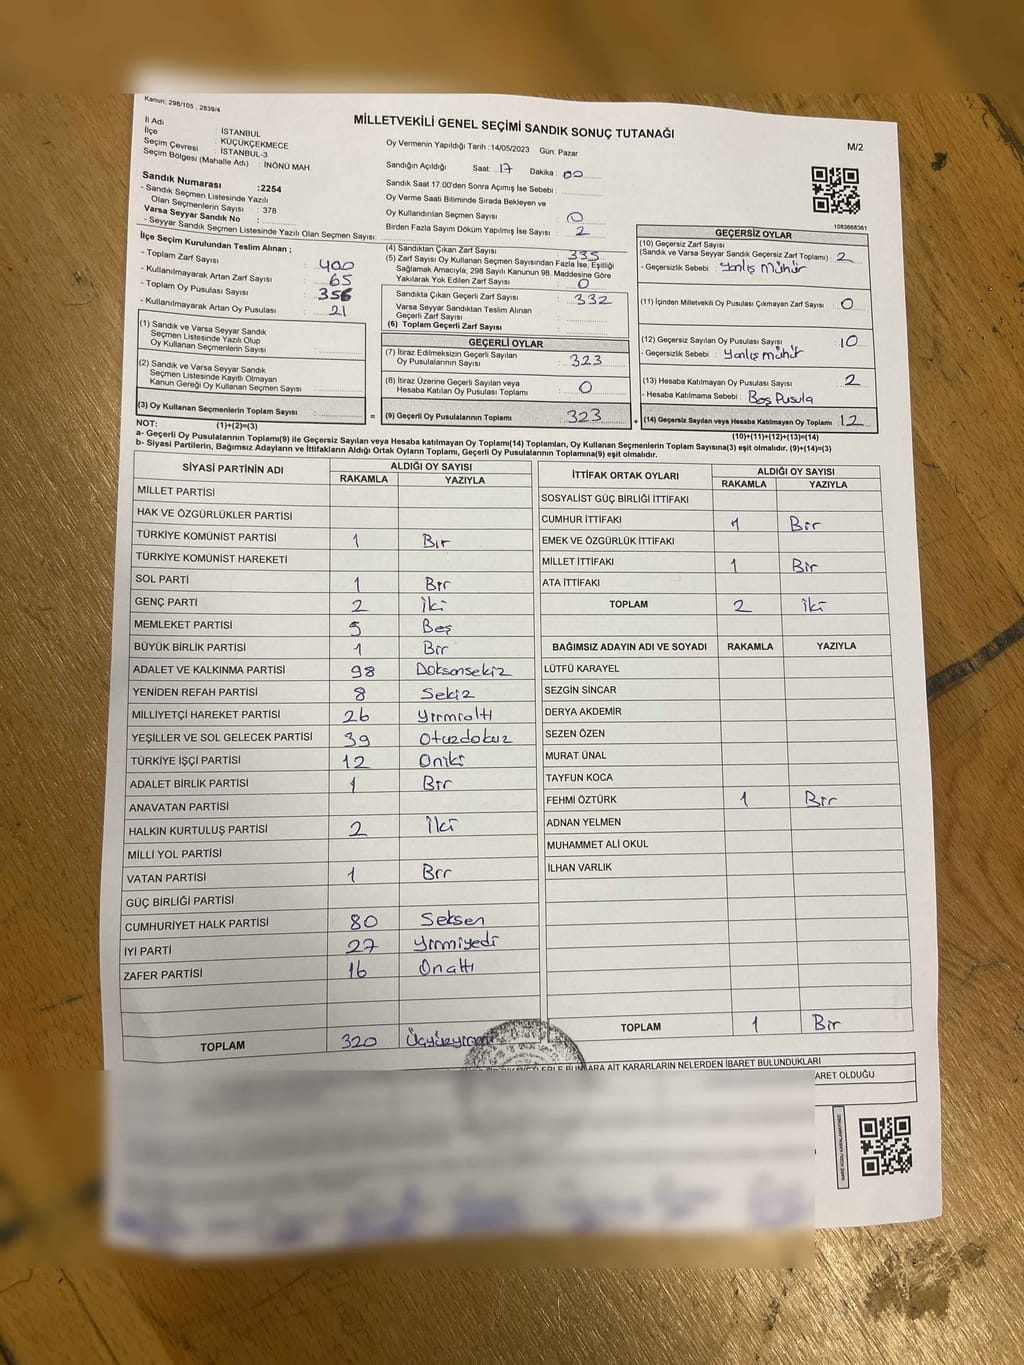 Kanun, 298/105 , 2839/4
MİLLETVEKİLİ GENEL SEÇİMİ SANDIK SONUÇ TUTANAĞI
M/2
İl Adı : İSTANBUL
İlçe : KÜÇÜKÇEKMECE
Seçim Çevresi : İSTANBUL-3
Seçim Bölgesi (Mahalle Adı) : İNÖNÜ MAH.
Sandık Numarası :2254
- Sandık Seçmen Listesinde Yazılı
Olan Seçmenlerin Sayısı : 378
Varsa Seyyar Sandık No :
- Seyyar Sandık Seçmen Listesinde Yazılı Olan Seçmen Sayısı:
Oy Vermenin Yapıldığı Tarih :14/05/2023 Gün: Pazar
Sandığın Açıldığı Saat: 17 Dakika : 00
Sandık Saat 17:00'den Sonra Açımış İse Sebebi :
Oy Verme Saati Bitiminde Sırada Bekleyen ve
Oy Kullandırılan Seçmen Sayısı : 0
Birden Fazla Sayım Döküm Yapılmış İse Sayısı : 2
1083668361
İlçe Seçim Kurulundan Teslim Alınan ;
- Toplam Zarf Sayısı : 400
- Kullanılmayarak Artan Zarf Sayısı : 65
- Toplam Oy Pusulası Sayısı : 356
- Kullanılmayarak Artan Oy Pusulası : 21
(1) Sandık ve Varsa Seyyar Sandık
Seçmen Listesinde Yazılı Olup
Oy Kullanan Seçmenlerin Sayısı :
(2) Sandık ve Varsa Seyyar Sandık
Seçmen Listesinde Kayıtlı Olmayan
Kanun Gereği Oy Kullanan Seçmen Sayısı :
(3) Oy Kullanan Seçmenlerin Toplam Sayısı :
(1)+(2)=(3)
(4) Sandıktan Çıkan Zarf Sayısı : 335
(5) Zarf Sayısı Oy Kullanan Seçmen Sayısından Fazla İse, Eşitliği
Sağlamak Amacıyla, 298 Sayılı Kanunun 98. Maddesine Göre
Yakılarak Yok Edilen Zarf Sayısı : 0
Sandıkta Çıkan Geçerli Zarf Sayısı : 332
Varsa Seyyar Sandıktan Teslim Alınan
Geçerli Zarf Sayısı :
(6) Toplam Geçerli Zarf Sayısı :
GEÇERLİ OYLAR
(7) İtiraz Edilmeksizin Geçerli Sayılan
Oy Pusulalarının Sayısı : 323
(8) İtiraz Üzerine Geçerli Sayılan veya
Hesaba Katılan Oy Pusulası Toplamı : 0
= (9) Geçerli Oy Pusulalarının Toplamı : 323
GEÇERSİZ OYLAR
(10) Geçersiz Zarf Sayısı
(Sandık ve Varsa Seyyar Sandık Geçersiz Zarf Toplamı) : 2
- Geçersizlik Sebebi : Yanlış Mühür
(11) İçinden Milletvekili Oy Pusulası Çıkmayan Zarf Sayısı : 0
(12) Geçersiz Sayılan Oy Pusulası Sayısı : 10
- Geçersizlik Sebebi : Yanlış mühür
(13) Hesaba Katılmayan Oy Pusulası Sayısı : 2
- Hesaba Katılmama Sebebi : Boş Pusula
+ (14) Geçersiz Sayılan veya Hesaba Katılmayan Oy Toplamı : 12
(10)+(11)+(12)+(13)=(14)
NOT:
a- Geçerli Oy Pusulalarının Toplamı(9) ile Geçersiz Sayılan veya Hesaba katılmayan Oy Toplamı(14) Toplamları, Oy Kullanan Seçmenlerin Toplam Sayısına(3) eşit olmalıdır. (9)+(14)=(3)
b- Siyasi Partilerin, Bağımsız Adayların ve İttifakların Aldığı Ortak Oyların Toplamı, Geçerli Oy Pusulalarının Toplamına(9) eşit olmalıdır.
SİYASİ PARTİNİN ADI ALDIĞI OY SAYISI
RAKAMLA YAZIYLA
MİLLET PARTİSİ
HAK VE ÖZGÜRLÜKLER PARTİSİ
TÜRKİYE KOMÜNİST PARTİSİ 1 Bir
TÜRKİYE KOMÜNİST HAREKETİ
SOL PARTİ 1 Bir
GENÇ PARTİ 2 İki
MEMLEKET PARTİSİ 5 Beş
BÜYÜK BİRLİK PARTİSİ 1 Bir
ADALET VE KALKINMA PARTİSİ 98 Doksansekiz
YENİDEN REFAH PARTİSİ 8 Sekiz
MİLLİYETÇİ HAREKET PARTİSİ 26 Yirmialtı
YEŞİLLER VE SOL GELECEK PARTİSİ 39 Otuzdokuz
TÜRKİYE İŞÇİ PARTİSİ 12 Oniki
ADALET BİRLİK PARTİSİ 1 Bir
ANAVATAN PARTİSİ
HALKIN KURTULUŞ PARTİSİ 2 İki
MİLLİ YOL PARTİSİ
VATAN PARTİSİ 1 Bir
GÜÇ BİRLİĞİ PARTİSİ
CUMHURİYET HALK PARTİSİ 80 Seksen
İYİ PARTİ 27 Yirmiyedi
ZAFER PARTİSİ 16 Onaltı
TOPLAM 320
İTTİFAK ORTAK OYLARI ALDIĞI OY SAYISI
RAKAMLA YAZIYLA
SOSYALİST GÜÇ BİRLİĞİ İTTİFAKI
CUMHUR İTTİFAKI 1 Bir
EMEK VE ÖZGÜRLÜK İTTİFAKI
MİLLET İTTİFAKI 1 Bir
ATA İTTİFAKI
TOPLAM 2 İki
BAĞIMSIZ ADAYIN ADI VE SOYADI RAKAMLA YAZIYLA
LÜTFÜ KARAYEL
SEZGİN SİNCAR
DERYA AKDEMİR
SEZEN ÖZEN
MURAT ÜNAL
TAYFUN KOCA
FEHMİ ÖZTÜRK 1 Bir
ADNAN YELMEN
MUHAMMET ALİ OKUL
İLHAN VARLIK
TOPLAM 1 Bir
AİT KARARLARIN NELERDEN İBARET BULUNDUKLARI
ARET OLDUĞU